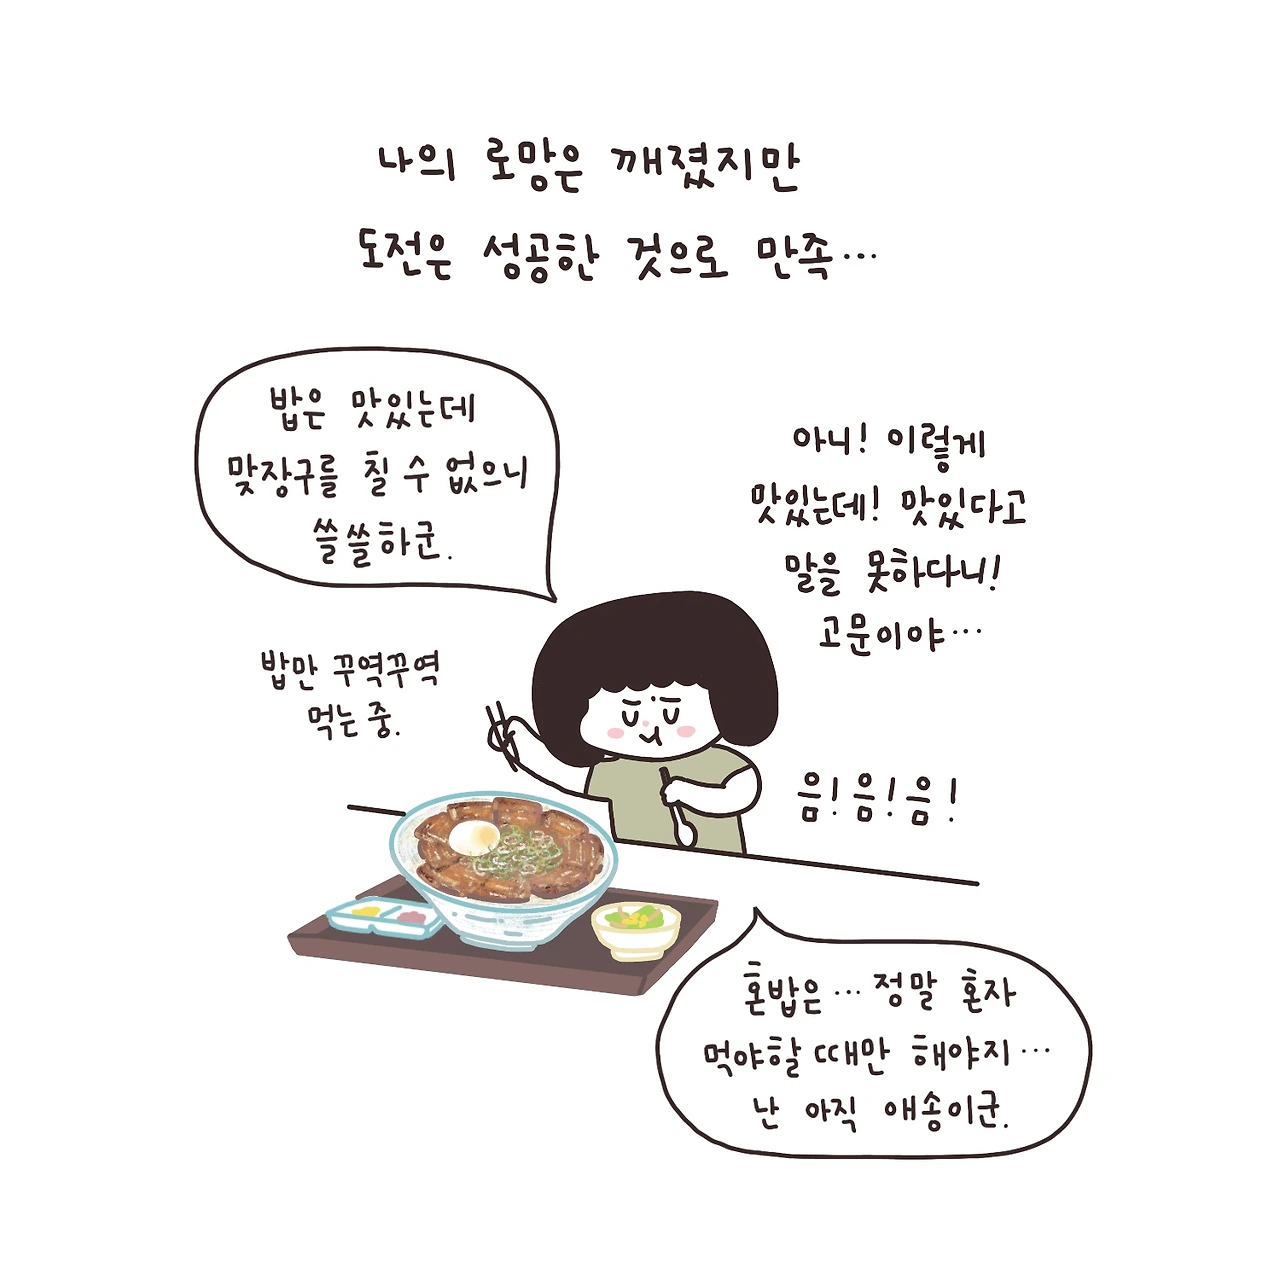 나의 로망은 깨졌지만
도전은 성공한 것으로 만족…
밥은 맛있는데
맞장구를 칠 수 없으니
쓸쓸하군.
아니! 이렇게
맛있는데! 맛있다고
말을 못하다니!
고문이야…
밥만 꾸역꾸역
먹는 중.
음! 음! 음!
혼밥은… 정말 혼자
먹야할 때만 해야지…
난 아직 애송이군.